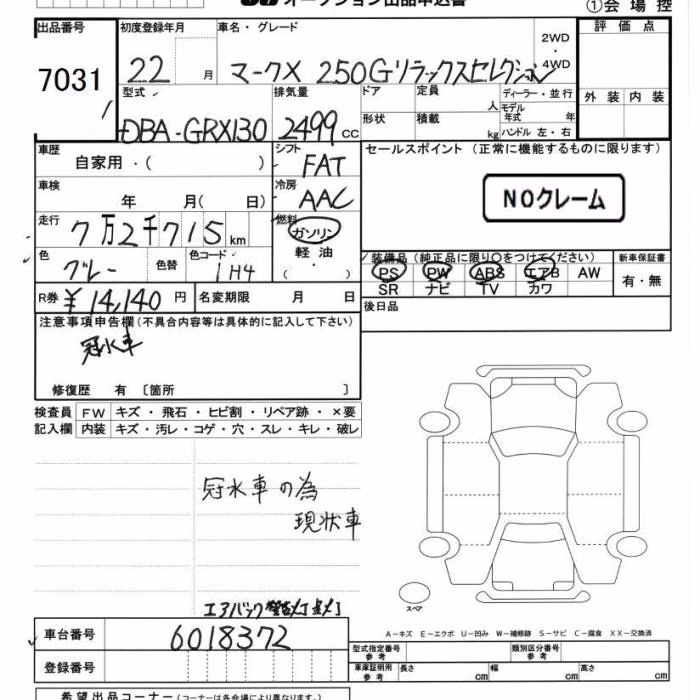 オークション出品申込書
①会場控
出品番号 初度登録年月 車名・グレード 評価点
7031 22 月 マークX 250Gリラックスセレクション 2WD・4WD
外装 内装
型式 排気量 ドア 定員 ディーラー・並行
DBA-GRX130 2499 cc 人 モデル年式 年
形状 積載 kg ハンドル 左・右
車歴 シフト セールスポイント (正常に機能するものに限ります)
自家用・( ) FAT
車検 冷房 NOクレーム
年 月( 日) AAC
走行 燃料
7万2千715km ガソリン
色 色替 色コード 軽油 装備品(純正品に限り○をつけてください) 新車保証書
グレー 1H4 ・( ) PS PW ABS エアB AW 有・無
SR ナビ TV カワ
R券 ¥14,140円 名変期限 月 日 後日品
注意事項申告欄(不具合内容等は具体的に記入して下さい)
冠水車
修復歴 有 〔箇所 〕
検査員 FW キズ・飛石・ヒビ割・リペア跡・×要
記入欄 内装 キズ・汚レ・コゲ・穴・スレ・キレ・破レ
冠水車の為
現状車
スペア
エアバック警告灯点灯
A-キズ E-エクボ U-凹み W-補修跡 S-サビ C-腐食 XX-交換済
車台番号 6018372 型式指定番号 参考 類別区分番号 参考
登録番号 車庫証明用 参考 長さ cm 幅 cm 高さ cm
希望出品コーナー (コーナーは各会場により異なります。)